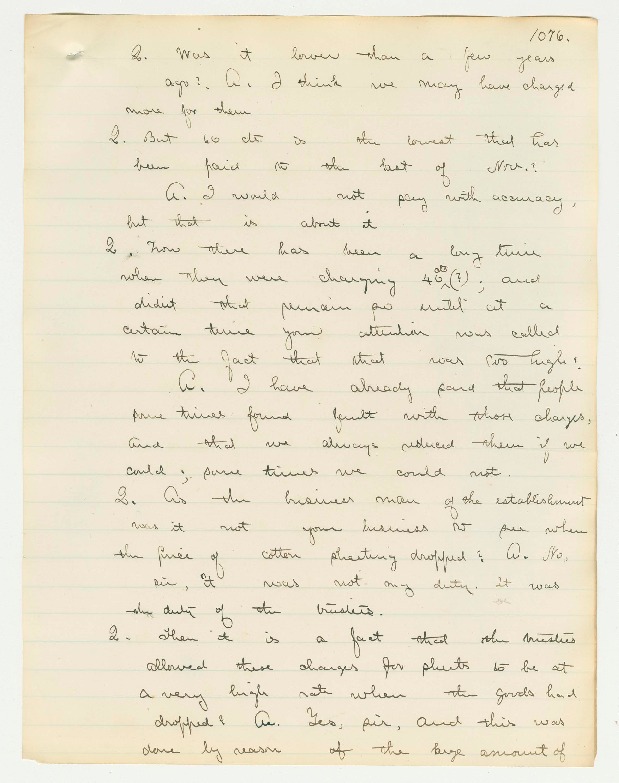 1076.
Q. Was it lower than a few years
ago? A. I think we may have charged
more for them
Q. But 60 cts is the lowest that has
been paid to the last of Nov.?
A. I would not say with accuracy,
but that is about it
Q. Now there has been a long time
when they were charging 46 cts (?); and
didnt that remain so until at a
certain time your attention was called
to the fact that that was too high?
A. I have already said that people
some times found fault with those charges,
and that we always reduced them if we
could; some times we could not.
Q. As the business man of the establishment
was it not your business to see when
the price of cotton sheeting dropped? A. No,
sir, it was not my duty. It was
the duty of the trustees.
Q. Then it is a fact that the trustees
allowed these charges for sheets to be at
a very high rate when the goods had
dropped? A. Yes, sir, and this was
done by reason of the large amount of